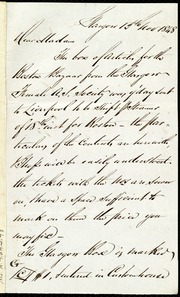 Glasgow 15th Nov 1848
Dear Madam
The box of Articles for the
Boston Bazaar from the Glasgow
Female A.S. Society was sent
to Liverpool to be Shipd Steamer
of 18th inst for Boston - the par-
ticulars of the Contents are beneath
& Shall be easily understood.
The tickets with the Nos are sewn
on, & have a space sufficient to
mark on them the price you
may fix -
The Glasgow Box is marked
No 1, entered in Customhouse